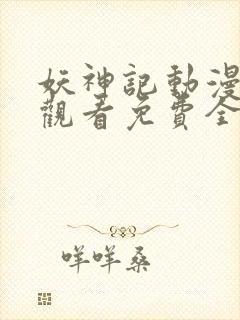 妖神記動漫
觀看免費全
咩咩桑